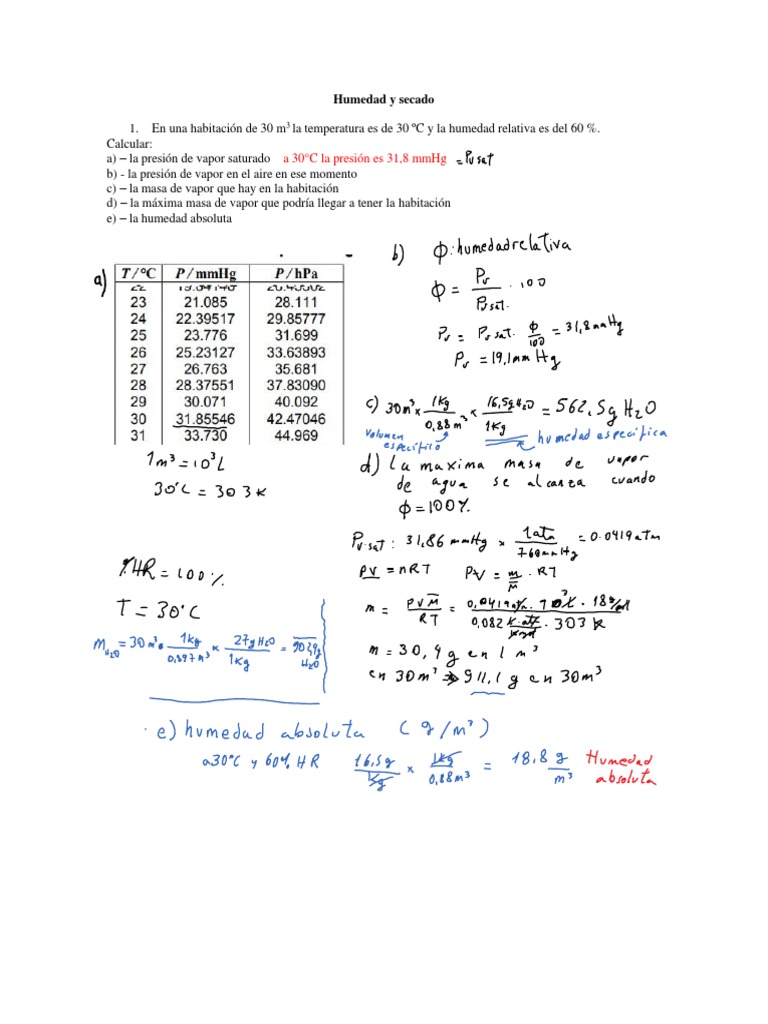 Humedad y secado
1. En una habitación de 30 m³ la temperatura es de 30 ºC y la humedad relativa es del 60 %.
Calcular:
a) – la presión de vapor saturado a 30°C la presión es 31,8 mmHg = Pv sat
b) - la presión de vapor en el aire en ese momento
c) – la masa de vapor que hay en la habitación
d) – la máxima masa de vapor que podría llegar a tener la habitación
e) – la humedad absoluta
a)
T / °C P / mmHg P / hPa
23 21.085 28.111
24 22.39517 29.85777
25 23.776 31.699
26 25.23127 33.63893
27 26.763 35.681
28 28.37551 37.83090
29 30.071 40.092
30 31.85546 42.47046
31 33.730 44.969
1m³ = 10³ L
30°C = 303 K
b) Φ: humedad relativa
Φ = Pv / Pv sat. · 100
Pv = Pv sat. Φ/100 = 31,8 mmHg
Pv = 19,1 mm Hg
c) 30m³ x 1kg / 0,88 m³ x 16,5g H2O / 1kg = 562,5g H2O
volumen específico
humedad específica
d) La maxima masa de vapor
de agua se alcanza cuando
Φ = 100%.
Pv sat: 31,86 mmHg x 1atm / 760mmHg = 0.0419 atm
PV = nRT PV = m/M · RT
m = PVM / RT = 0,0419 atm · 10³ L · 18 g/mol / 0,082 · 303 K
m = 30,4 g en 1 m³
en 30m³ → 911,1 g en 30m³
% HR = 100%
T = 30°C
M H2O = 30 m³ · 1kg / 0,897 m³ x 27g H2O / 1kg = 903,9g H2O
e) humedad absoluta (g/m³)
a 30°C y 60% HR 16,5g / kg x 1kg / 0,88m³ = 18,8 g / m³ Humedad absoluta